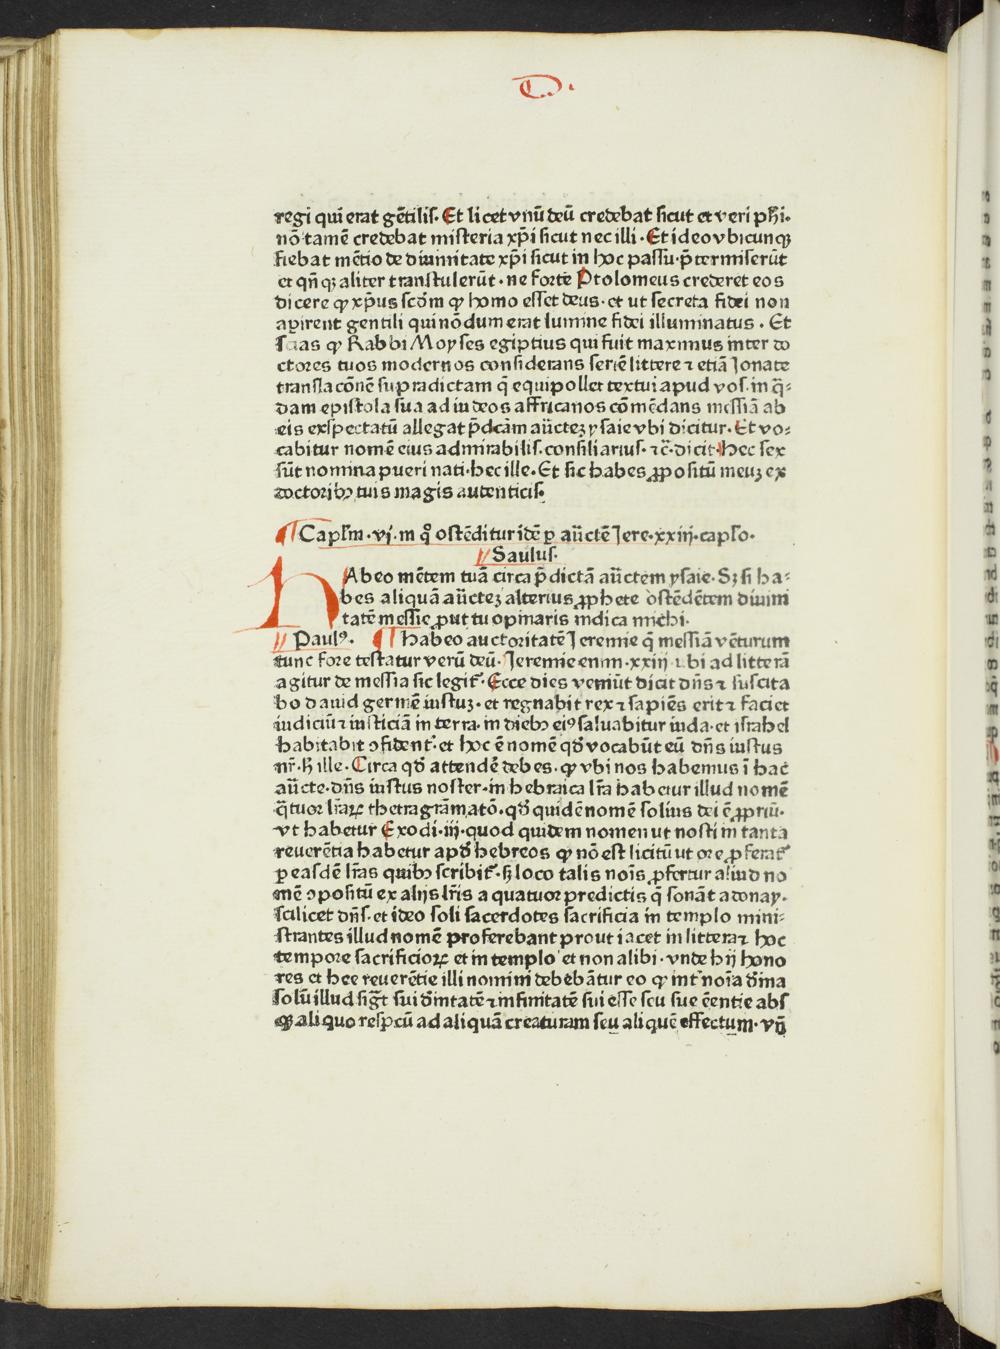 D.
regi qui erat gẽtilis. Et licet vnũ deũ credebat sicut et veri phĩ.
nõ tamẽ credebat misteria xp̃i sicut nec illi. Et ideo vbicunqꝫ
fiebat mẽtio de diuinitate xp̃i sicut in hoc passu. p̃termiserũt
et qñqꝫ aliter transtulerũt. ne forte Ptolomeus crederet eos
dicere ꝙ xp̃us scd̃m ꝙ homo esset deus. et ut secreta fidei non
apirent gentili qui nõdum erat lumine fidei illuminatus. Et
scias ꝙ Rabbi Moyses egiptius qui fuit maximus inter do
ctores tuos modernos considerans seriẽ littere ⁊ etiã Jonate
translacõnẽ supradictam q̃ equipollet textui apud vos. in q̃-
dam epistola sua ad iudeos affricanos cõmẽdans messiã ab
eis exspectatũ allegat p̃dcãm aũctez ysaie vbi dicitur. Et vo-
cabitur nomẽ eius admirabilis. consiliarius. ⁊c̃. dicit. Hec sex
sũt nomina pueri nati. hec ille. Et sic habes ꝓpositũ meuꝫ ex
doctoribꝫ tuis magis autenticis.
¶ Capłm. vj. in q̊ ostẽditur idẽ ꝑ aũctẽ Jere. xxiij. capło.
Saulus.
HAbeo mẽtem tuã circa p̃dictã aũctem ysaie. Sꝫ si ha-
bes aliquã aũctez alterius ꝓphete ostẽdẽtem diuini
tatẽ messie ꝓut tu opinaris indica michi.
Paulꝰ. ¶ Habeo auctoritatẽ Jeremie q̃ messiã vẽturum
tunc fore testatur verũ deũ. Jeremie enim. xxiij vbi ad litterã
agitur de messia sic legit̃. Ecce dies veniũt dicit dñs ⁊ suscita
bo dauid germẽ iustuꝫ. et regnabit rex ⁊ sapiẽs erit ⁊ faciet
iudiciũ ⁊ iusticiã in terra. in diebꝫ eiꝰ saluabitur iuda. et israhel
habitabit ꝯfident̃. et hoc ẽ nomẽ qđ vocabũt eũ dñs iustus
nr̃. h̃ ille. Circa qđ attendẽ debes. ꝙ vbi nos habemus ĩ hac
aũcte. dñs iustus noster. in hebraica lr̃a habetur illud nomẽ
q̃tuor lr̃aꝝ thetragrãmatõ. qđ quidẽ nomẽ solius dei ẽ ꝓpriũ.
vt habetur Exodi. iij. quod quidem nomen ut nosti in tanta
reuerẽtia habetur apđ hebreos ꝙ nõ est licitũ ut ore ꝓferat̃
ꝑ easdẽ lr̃as quibꝫ scribit̃. h̃ loco talis noĩs ꝓfertur aliud no
mẽ ꝯpositũ ex alijs lr̃is a quatuor predictis q̃ sonãt adonay.
scilicet dñs. et ideo soli sacerdotes sacrificia in templo mini-
strantes illud nomẽ proferebant prout iacet in littera ⁊ hoc
tempore sacrificioꝝ et in templo et non alibi. vnde hij hono
res et hee reuerẽtie illi nomini debebãtur eo ꝙ int̃ noĩa diuina
solũ illud sigt̃ sui diuintatẽ ⁊ infinitatẽ sui esse seu sue eẽntie abs
qꝫ aliquo respcũ ad aliquã creaturam seu aliquẽ effectum. vñ